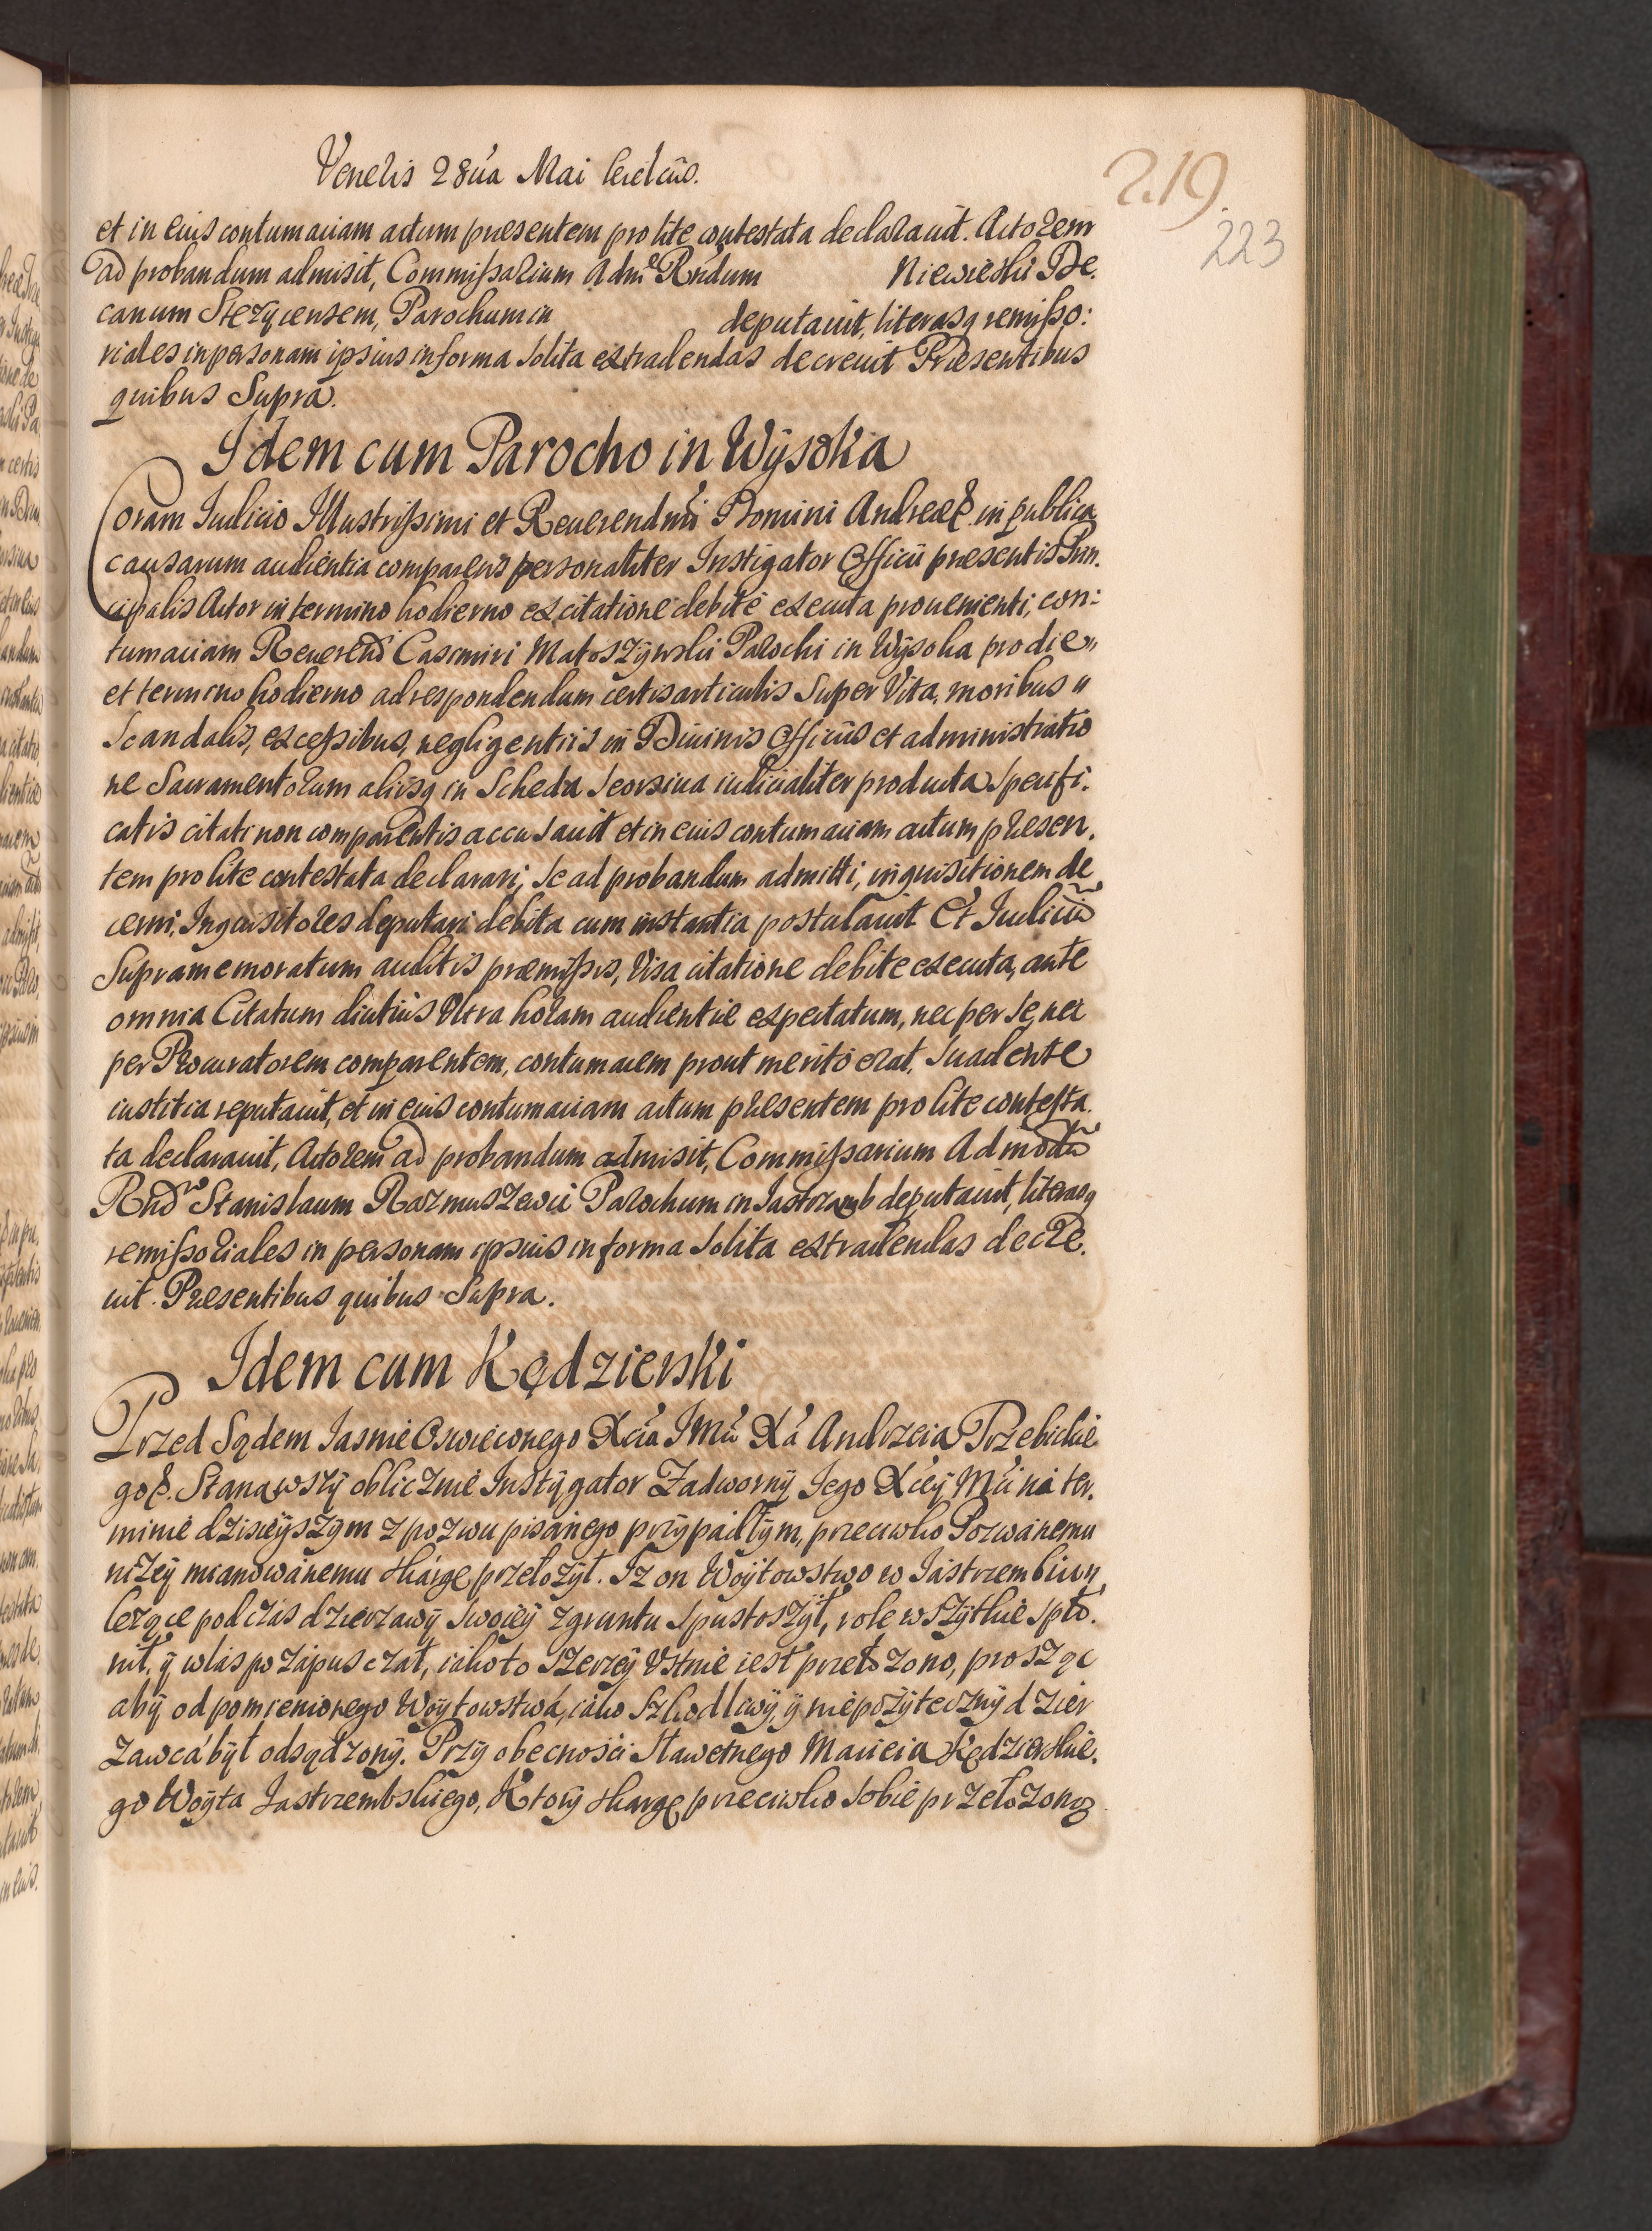 Veneris 28ua Mai
219.
223
et in eius contumaciam actum presentem pro lite contestata declarauit. Actorem
ad probandum admisit, Commissarium Adm. Rndum Niewieski De-
canum Stezycensem, Parochum in deputauit, literasq remisso:
riales in personam ipsius in forma solita extradendas decreuit Præsentibus
quibus Supra.
Idem cum Parocho in Wÿsoka
Coram Iudicio Illustrissimi et Reuerendmi Domini Andreæ &. in publica
causarum audientia comparens personaliter Instigator Officii presentis Prin-
cipalis Actor in termino hodierno ex citatione debite executa prouenienti, con:
tumaciam Reuerendi Casimiri Matoszÿwski Parochi in Wÿsoka pro die
et termino hodierno ad respondendum certis articulis Super Vita, moribus
Scandalis, excessibus, negligentiis in Diuinis Officiis et administratio
ne Sacramentorum aliisq in Scheda Seorsiua iudicialiter producta Specifi-
catis citati non comparentis accusauit et in eius contumaciam actum presen-
tem pro lite contestata declarari, Se ad probandum admitti, inquisitionem de
cerni, Inquisitores deputari debita cum instantia postulauit Et Iudiciu
Supramemoratum auditis præmissis, Visa citatione debite executa, ante
omnia Citatum diutius Vltra horam audientiæ expectatum, nec per Se nec
per Procuratorem comparentem, contumacem prout merito erat, Suadente
iustitia reputauit, et in eius contumaciam actum presentem pro lite contesta-
ta declarauit, Actorem ad probandum admisit, Commissarium Admodu
Rnd Stanislaum Razmuszewic Parochum in Iastrzamb deputauit, literasq
remissoriales in personam ipsius in forma Solita extradendas decre-
uit. Præsentibus quibus Supra.
Idem cum Kędzierski
Przed Sądem Iasnie Oswieconego Xcia IMci Xa Andrzeia Trzebickie
go &. Stanąwszÿ oblicznie Instÿgator Zadwornÿ Iego Xcey Mci na ter-
minie dzisieÿszÿm z pozwu pisanego przÿpadłÿm, przeciwko Pozwanemu
niżeÿ mianowanemu skargę przełożÿł. Iz on Woÿtowstwo w Iastrzembiu n
leżące podczas dzierzawÿ Swoieÿ z gruntu Spustoszÿł, role wszÿtkie Spło-
nił, ÿ w las pozapusczał, iako to Szerzeÿ Vstnie iest przełozono, prosząc
abÿ od pomienionego Woÿtowstwa, iako Szkodliwÿ, ÿ niepożÿtecznÿ dzier
zawca bÿł odsądzonÿ. Przÿ obecnosci Sławetnego Macieia Kędzierskie-
go Woÿta Iastrzembskiego, Ktorÿ skargę przeciwko Sobie przełozoną